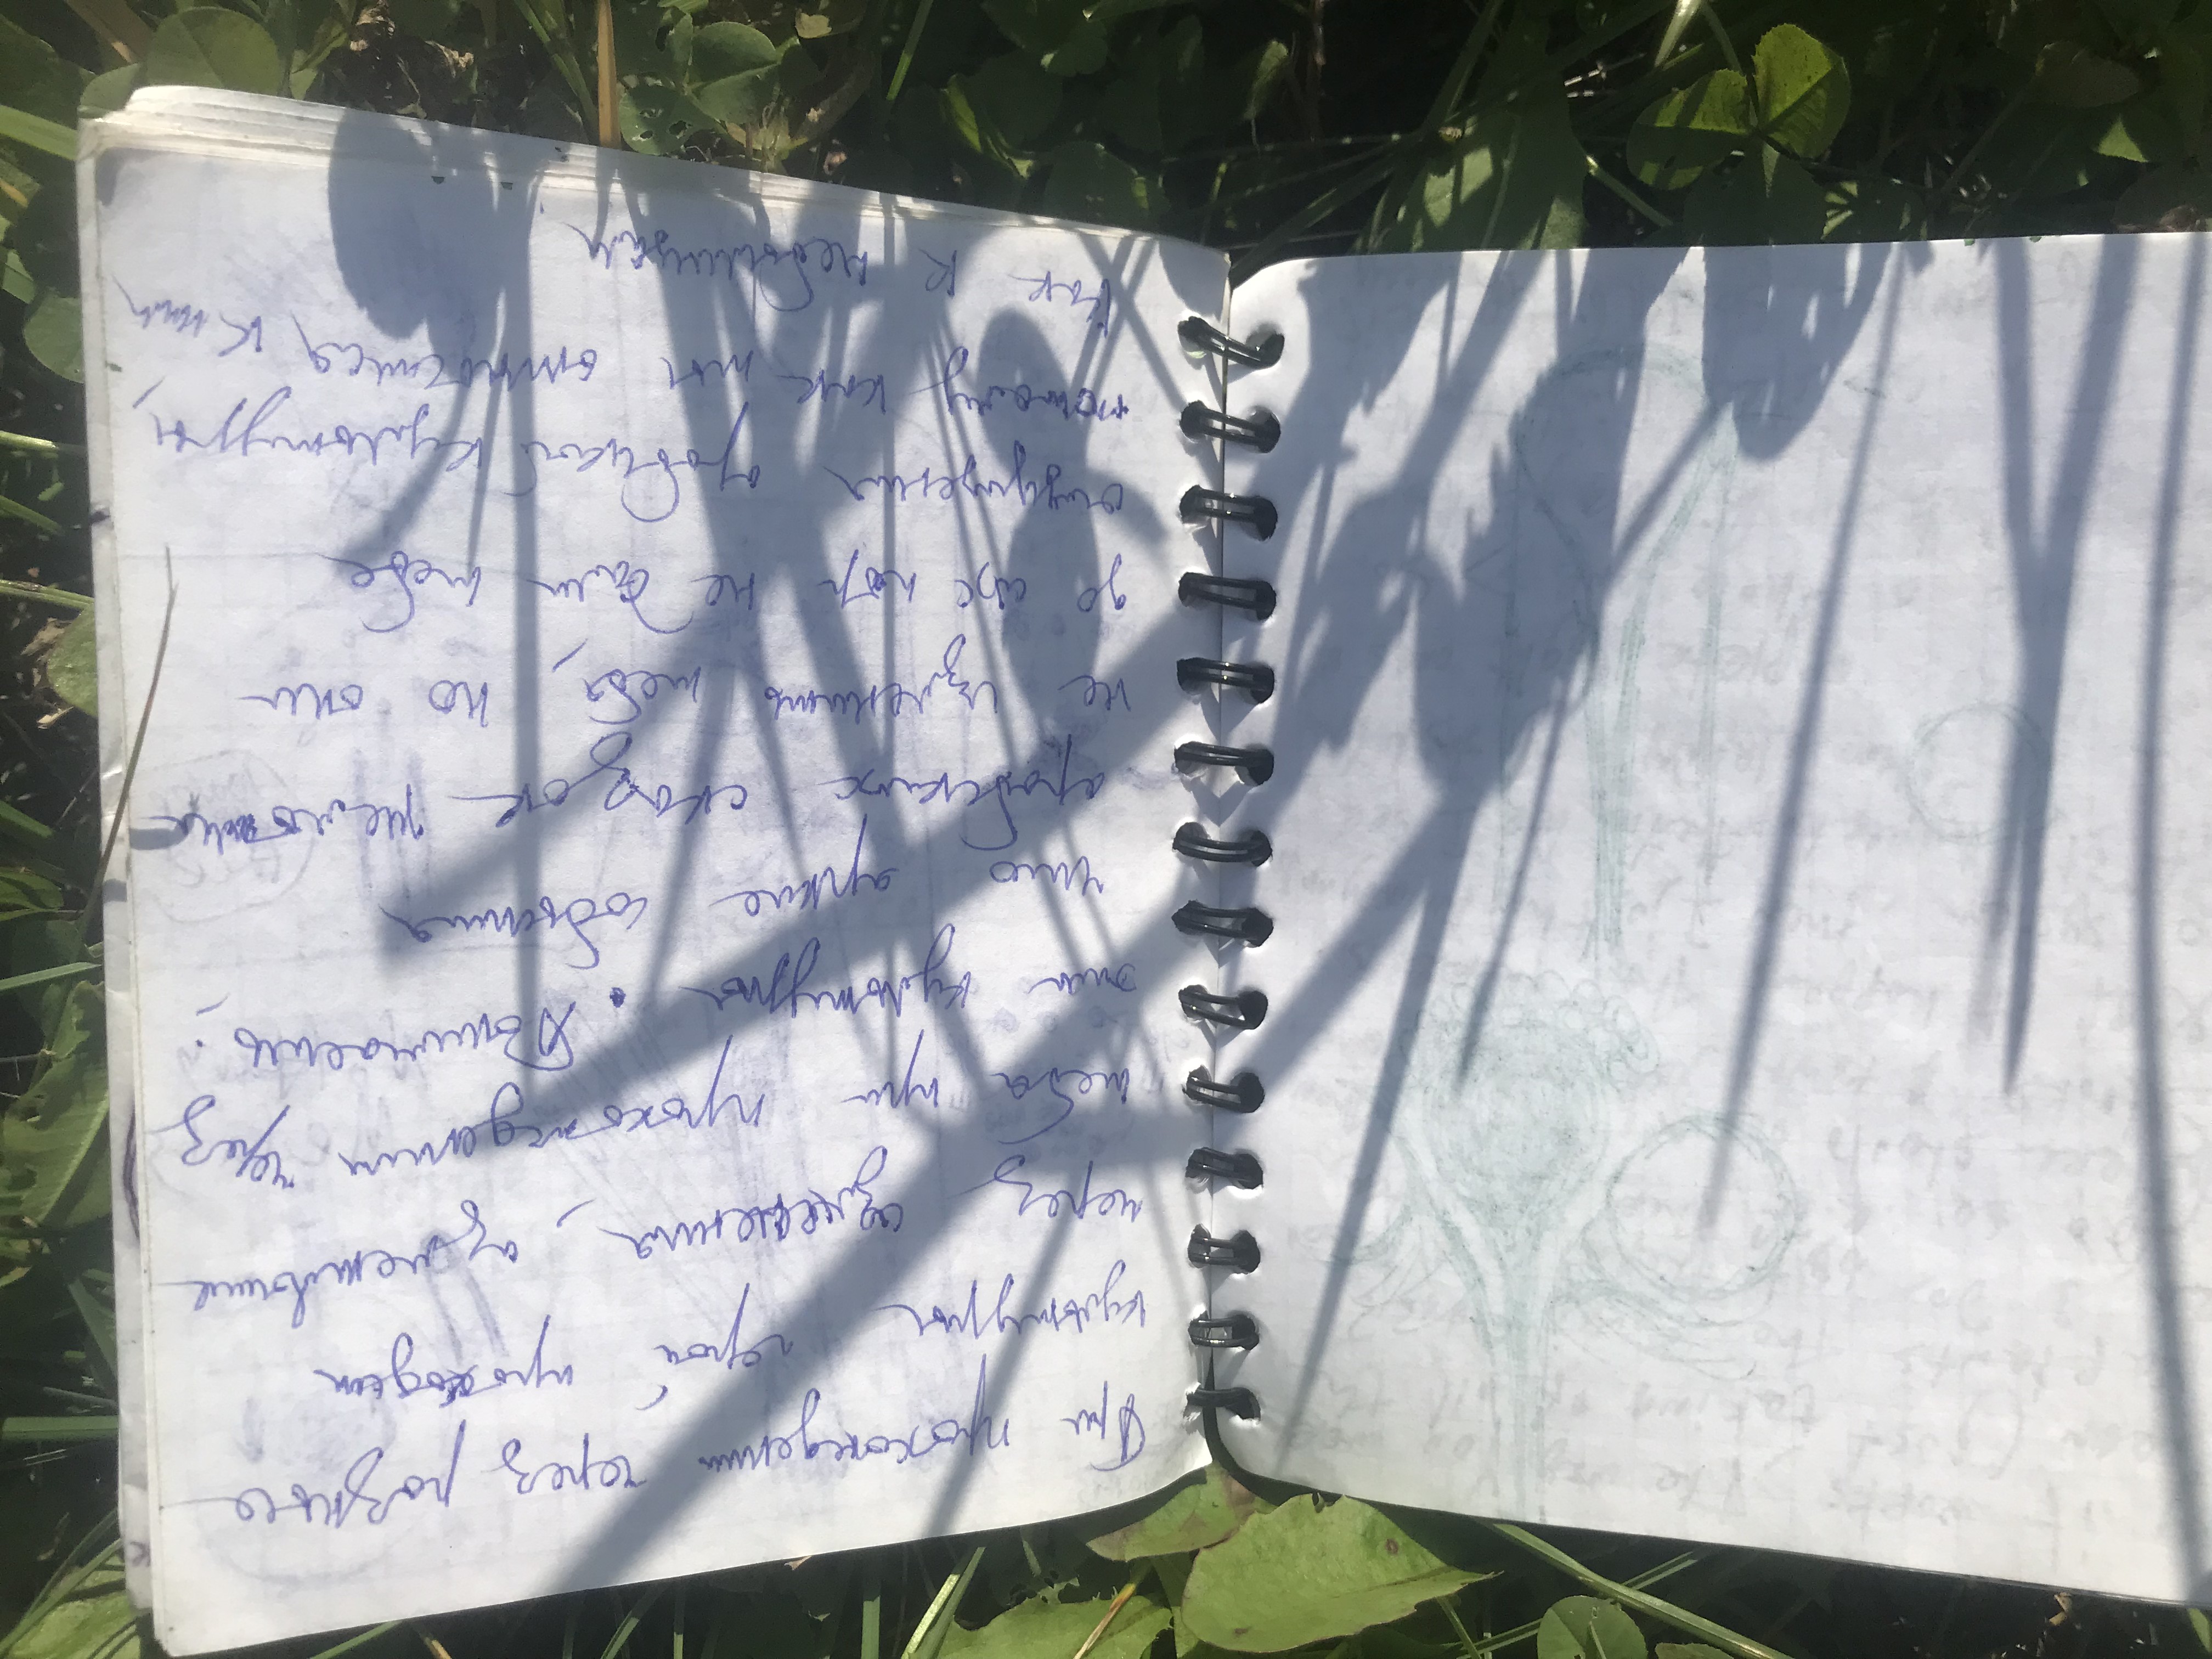 При прохождении через разные
культуры герой проходит
через изменения, изменившие
тебя при прохождении через
эти культуры. Понимаешь,
что яркие события
арабских сказок
не изменить тебя, но они
до сих пор не дали тебе
ощущения арабской культуры,
потому как ты относишся к ним
как к небылицам